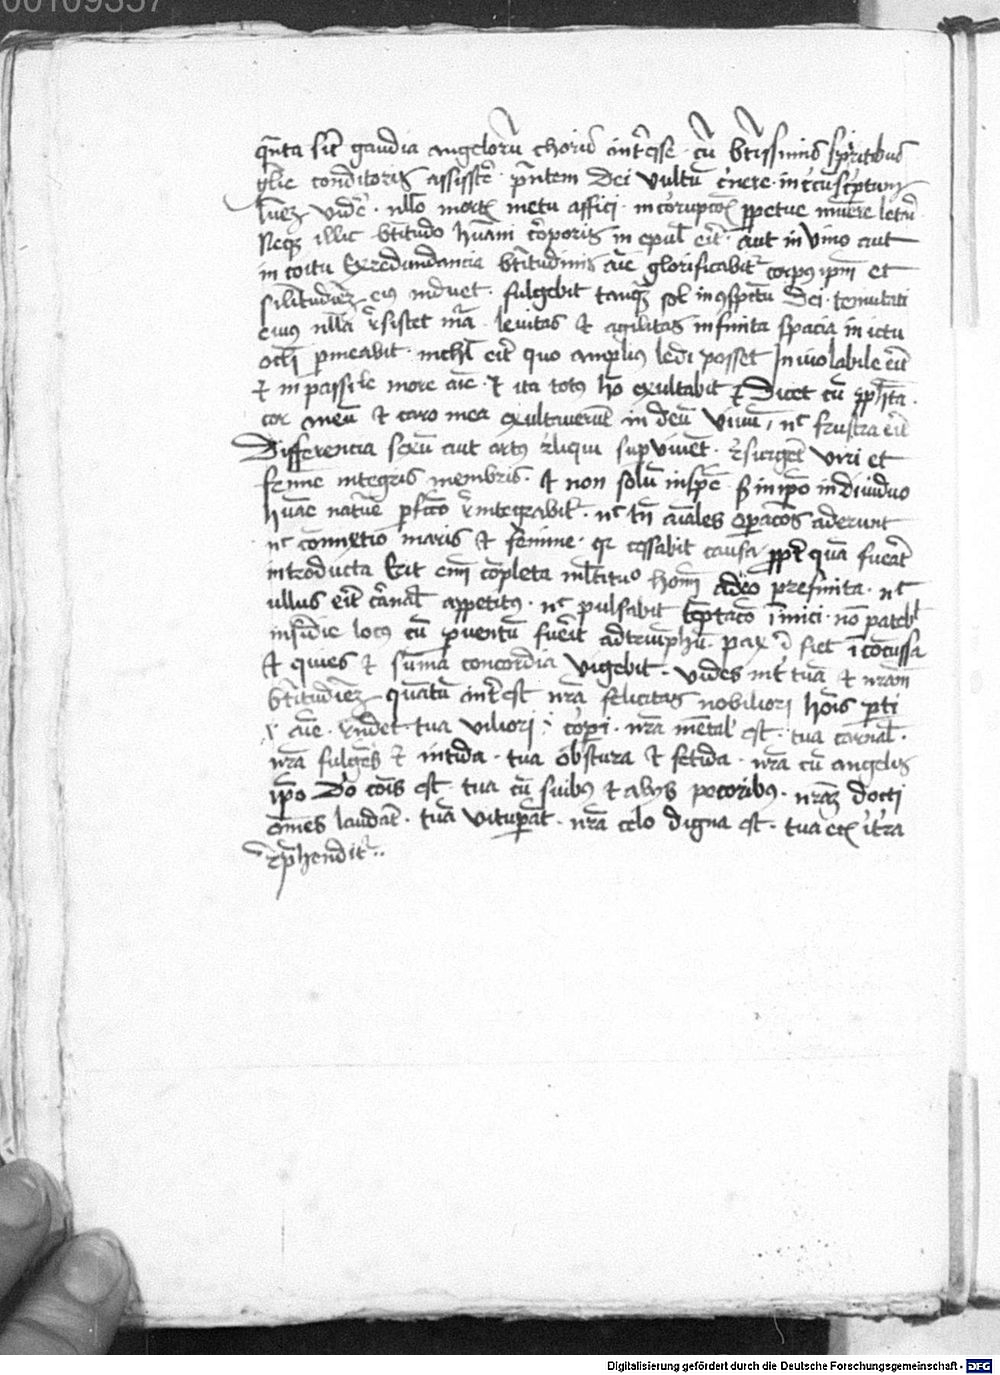 00109357
qnta sit gaudia angelorū choris int'esse · cū btissimis spiritibus
glie conditoris assistere · pntem Dei vultū c'nere · incircūscriptum
lumē vidē · nllo mortis metu affici · incorrupcois ppetue mun'e letari
Neqz illic btitudo humani corporis in epulis erit · aut in vino aut
in coitu Exredundancia btitudinis aīe glorificabit' corpus ipm et
similitudinez eius induet · fulgebit tanqz sol in cspectu Dei · tenuitati
eius nlla resistet mā · levitas et agilitas infinita spacia in ictu
oculi pmeabit · nichil erit quo amplius ledi posset Inviolabile erit
et inpassibile more aīe · et ita totus hō exultabit et Dicet cū ppheta ·
cor meū et caro mea exultaverunt in deū vivū · nc frustra erit
Differencia sexū aut artus reliqui supvivent · resurgent viri et
femine integris membris · et non solū in specie sed in ipso individuo
humane nature pfectio reintegrabit' · nc tn aīales opacōes aderunt
nc connextio maris et femine · qr cessabit causa ppt' quā fuerat
introducta Erit enim cōpleta multituo hominū a deo prefinita · nc
ullus erit carnalis appetitus · nc pulsabit temptaco inimici · nō patebit
insidie locus cū pventū fuerit ad triumphū · pax fiet incōcussa
et quies et sūma concordia vigebit · vides int' tuā et nram
btitudinez quantū int'est nrā felicitas nobiliori hois parti
i aīe · rndet · tua viliori i corpi · nrā mentalis est · tua carnalis ·
nrā fulgens et nitida · tua obscura et fetida · nrā cū angelis
ipso Deo cōis est · tua cū suibus et aliis pecoribus · nraz docti
omnes laudant · tuā vitupant · nrā celo digna est · tua etiā in terra
reprehenditur ··
Digitalisierung gefördert durch die Deutsche Forschungsgemeinschaft - DFG